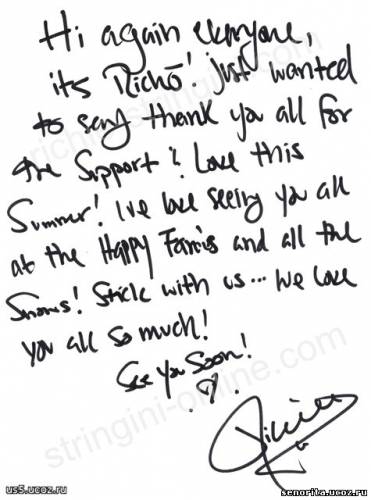 Hi again everyone,
its Richo! just wanted
to say thank you all for
the Support & Love this
Summer! I've love seeing you all
at the Happy Farms and all the
Shows! Stick with us... We Love
you all so much!
See You Soon!
stringini-online.com
us5.ucoz.ru
senorita.ucoz.ru